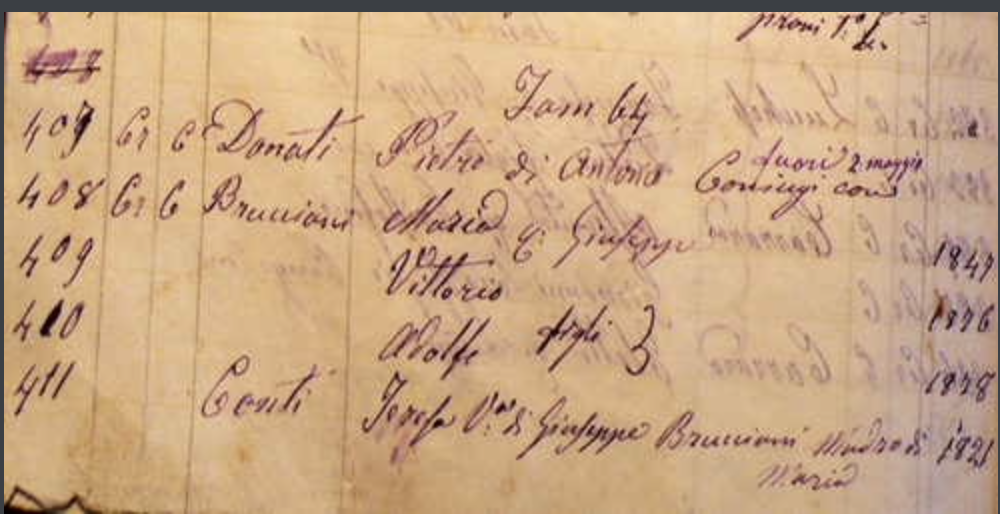 Fam 64
407 Cr C Donati Pietro di Antonio fuori 2 maggio
Coniugi con
408 Cr C Bruccioni Maria di Giuseppe 1847
409 Vittorio 1876
410 Adolfo figli } 1878
411 Conti Teresa Va di Giuseppe Bruccioni Madre di 1821
Maria